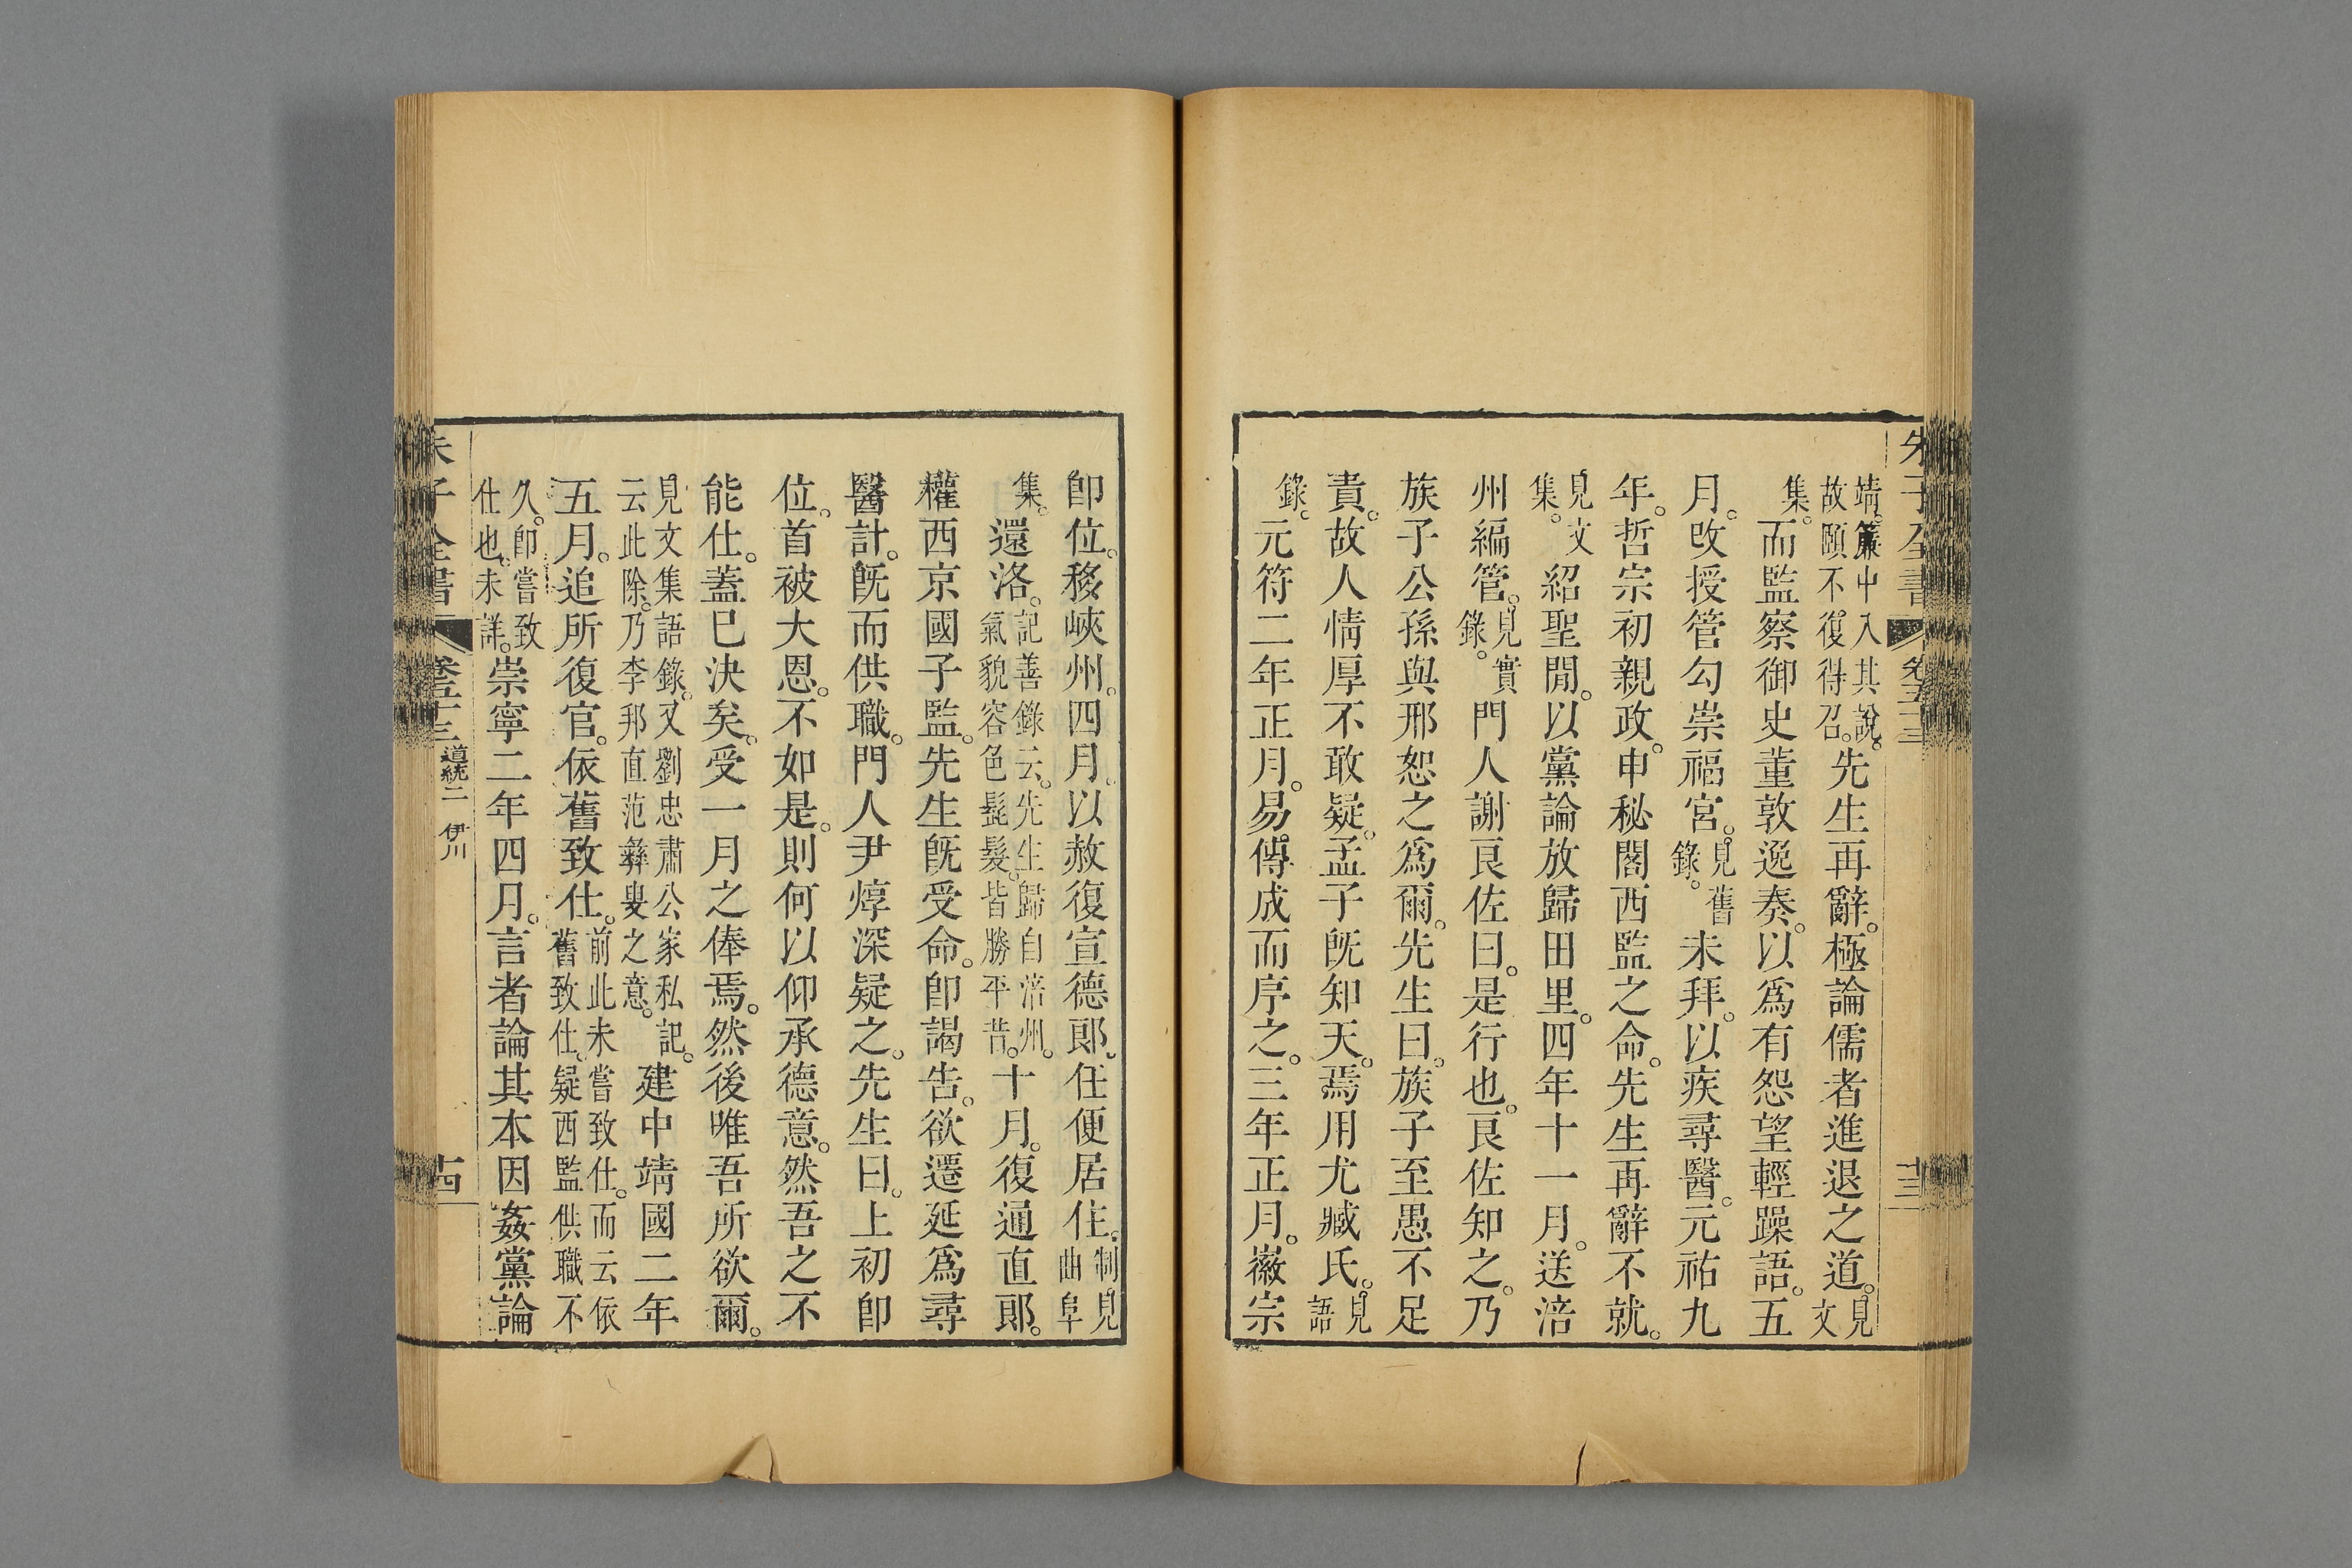 朱子全書 卷五十三 十三
靖。簾中入其說。故頤不復得召。先生再辭。極論儒者進退之道。見文
集。而監察御史董敦逸奏。以爲有怨望輕躁語。五
月。改授管勾崇福宮。見舊錄。未拜。以疾尋醫。元祐九
年。哲宗初親政。申秘閣西監之命。先生再辭不就。
見文集。紹聖閒。以黨論放歸田里。四年十一月。送涪
州編管。見實錄。門人謝良佐曰。是行也。良佐知之。乃
族子公孫與邢恕之爲爾。先生曰。族子至愚不足
責。故人情厚不敢疑。孟子旣知天。焉用尤臧氏。見語
錄。元符二年正月。易傳成而序之。三年正月。徽宗
卽位。移峽州。四月。以赦復宣德郞。任便居住。制見曲阜
集。還洛。記善錄云。先生歸自涪州。氣貌容色髭髮。皆勝平昔。十月。復通直郞。
權西京國子監。先生旣受命。卽謁告。欲遷延爲尋
醫計。旣而供職。門人尹焞深疑之。先生曰。上初卽
位。首被大恩。不如是。則何以仰承德意。然吾之不
能仕。蓋已決矣。受一月之俸焉。然後唯吾所欲爾。
見文集語錄。又劉忠肅公家私記。云此除。乃李邦直范彝叟之意。建中靖國二年
五月。追所復官。依舊致仕。前此未嘗致仕。而云依舊致仕。疑西監供職不
久。卽嘗致仕也。未詳。崇寧二年四月。言者論其本因姦黨論
朱子全書 卷五十三 道統二 伊川 十四